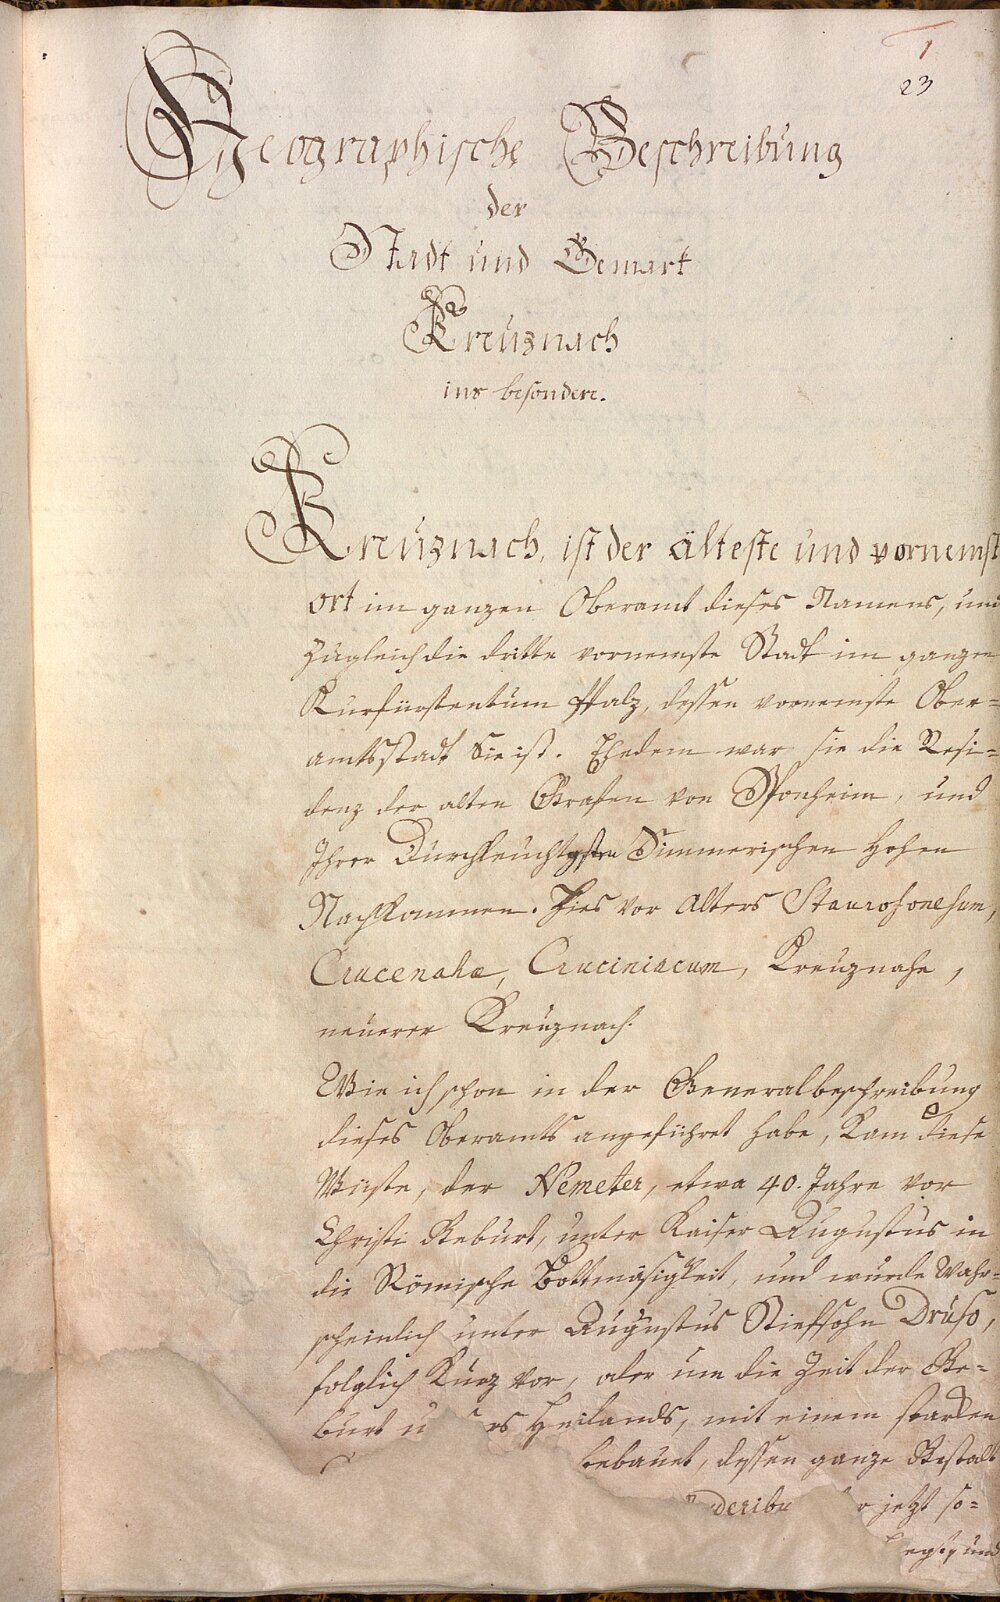 1
23
Geographische Beschreibung
der
Stadt und Gemark
Kreüznach
ins besondere.
Kreüznach, ist der älteste und vornemst
ort im ganzen Oberamt dieses Namens, und
zugleich die dritte vornemste Stadt im ganzen
Kurfürstentum Pfalz, dessen vornemste Ober=
amtsstadt Sie ist. Ehedem war sie die Resi=
denz der alten Grafen von Sponheim, und
Ihrer Durchleuchtgsten Simmerischen Hohen
Nachkommen. Hies vor Alters Staurosonesum,
Crucenahe, Cruciniacum, Kreuznahe,
neuerer Kreüznach.
Wie ich schon in der Generalbeschreibung
dieses Oberamts angeführet habe, kam diese
Wüste, der Nemeter, etwa 40. Jahre vor
Christi Geburt, unter Kaiser Augustus in
die Römische Bottmäsigkeit, und wurde Wahr=
scheinlich unter Augustus Stiefsohn Drüso,
folglich Kurz vor, oder um die Zeit der Ge=
burt u rs Heilands, mit einem starken
bebauet, dessen ganze Gestalt
deribu r jetzt so=
und